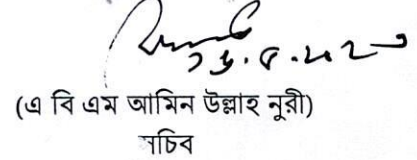 (এ বি এম আমিন উল্লাহ নূরী)
সচিব